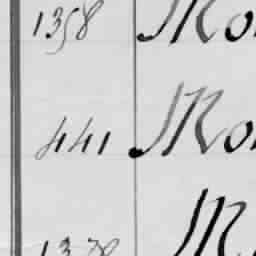 1358 Mo
441 Mo
1378 M